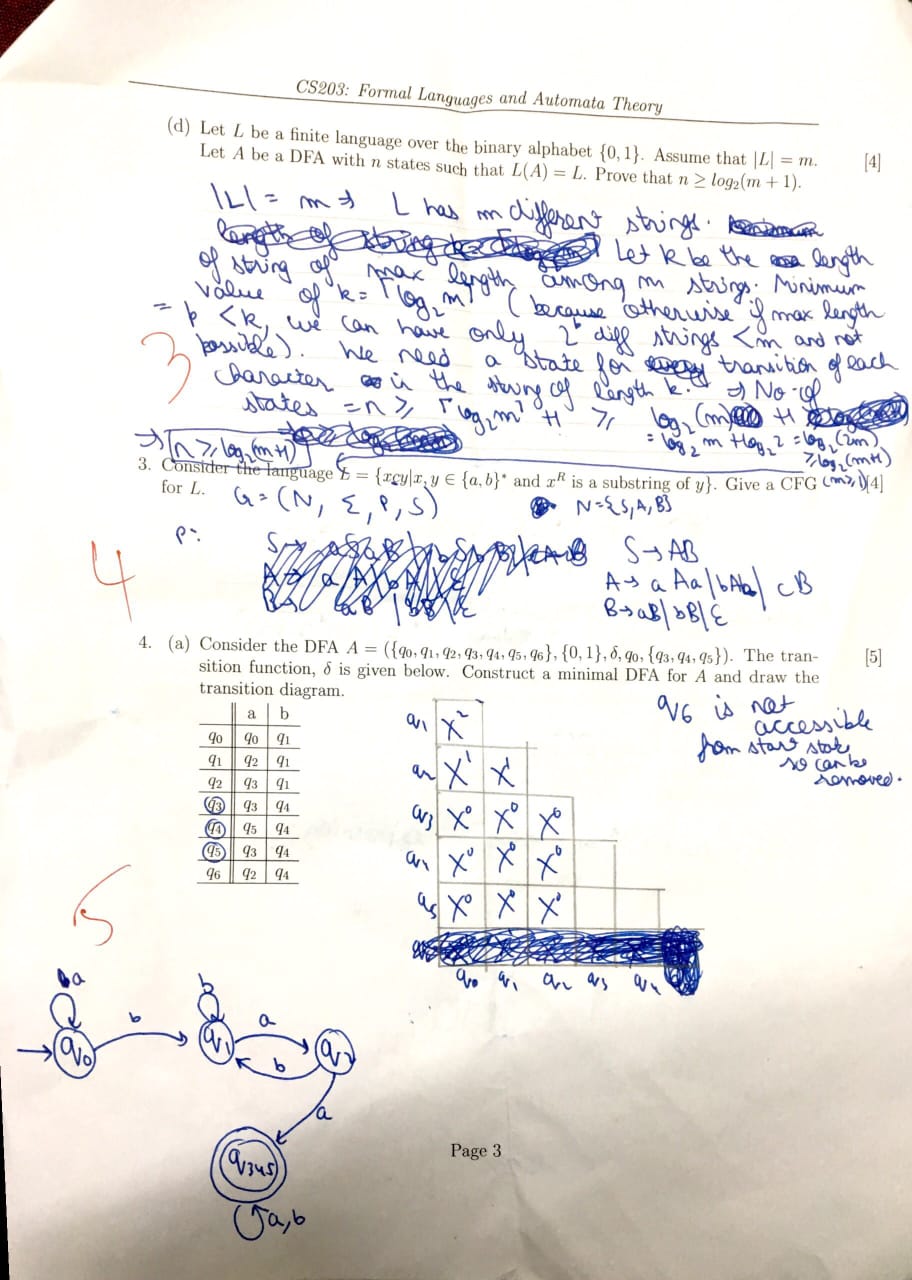 CS203: Formal Languages and Automata Theory
(d) Let L be a finite language over the binary alphabet {0, 1}. Assume that |L| = m. [4]
Let A be a DFA with n states such that L(A) = L. Prove that n ≥ log₂(m + 1).
|L| = m ⇒ L has m different strings.
Let k be the length
of string of max length among m strings. Minimum
value of k = ⌈log₂ m⌉ (because otherwise if max length
= p < k, we can have only 2ᵖ diff strings < m and not
possible). We need a state for transition of each
character in the string of length k. ⇒ No. of
states = n ≥ ⌈log₂ m⌉ + 1 ≥ log₂(m) + 1
= log₂ m + log₂ 2 = log₂(2m)
≥ log₂(m+1)
⇒ n ≥ log₂(m+1)
(m ≥ 1)
3
3. Consider the language L = {xcy|x, y ∈ {a, b}* and xᴿ is a substring of y}. Give a CFG [4]
for L.
G = (N, Σ, P, S) N = {S, A, B}
P:
S → AB
A → aAa | bAb | cB
B → aB | bB | ε
4
4. (a) Consider the DFA A = ({q₀, q₁, q₂, q₃, q₄, q₅, q₆}, {0, 1}, δ, q₀, {q₃, q₄, q₅}). The tran- [5]
sition function, δ is given below. Construct a minimal DFA for A and draw the
transition diagram.
a b
q₀ q₀ q₁
q₁ q₂ q₁
q₂ q₃ q₁
q₃ q₃ q₄
q₄ q₅ q₄
q₅ q₃ q₄
q₆ q₂ q₄
q₁ X²
q₂ X¹ X¹
q₃ X⁰ X⁰ X⁰
q₄ X⁰ X⁰ X⁰
q₅ X⁰ X⁰ X⁰
q₀ q₁ q₂ q₃ q₄
q₆ is not
accessible
from start state
so can be
removed.
5
a
b
b
a
q₀
q₁
q₂
b
a
q₃₄₅
a,b
Page 3